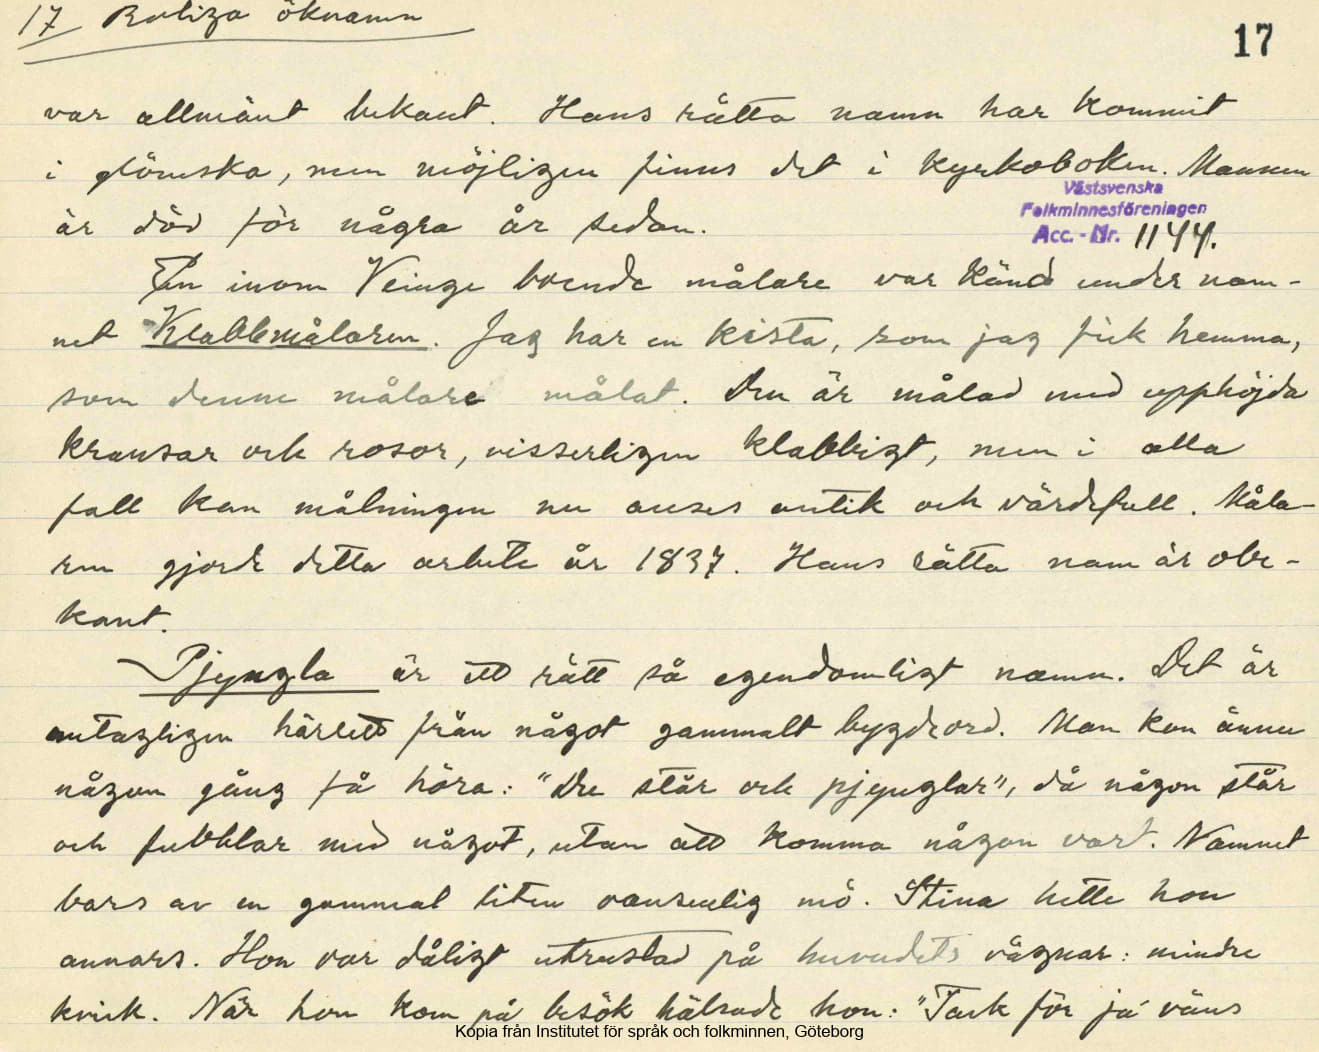 17 Roliga öknamn
17
var allmänt bekant. Hans rätta namn har kommit
i glömska, men möjligen finns det i kyrkoboken. Mannen
Västsvenska
Folkminnesföreningen
Acc. - Nr. 1144.
är död för några år sedan.
En inom Veinge boende målare var känd under nam-
net Klabbmålaren. Jag har en kista, som jag fick hemma,
som denne målare målat. Den är målad med upphöjda
kransar och rosor, visserligen klabbigt, men i alla
fall kan målningen nu anses antik och värdefull. Måla-
ren gjorde detta arbete år 1837. Hans rätta nam är obe-
kant.
Pjyngla är ett rätt så egendomligt namn. Det är
antagligen härlett från något gammalt bygdeord. Man kan ännu
någon gång få höra: "De står och pjynglar", då någon står
och fubblar med något, utan att komma någon vart. Namnet
bars av en gammal liten vansenlig mö. Stina hette hon
annars. Hon var dåligt utrustad på huvudets vägnar: mindre
kvick. När hon kom på besök hälsade hon: "Tack för ja väns
Kopia från Institutet för språk och folkminnen, Göteborg